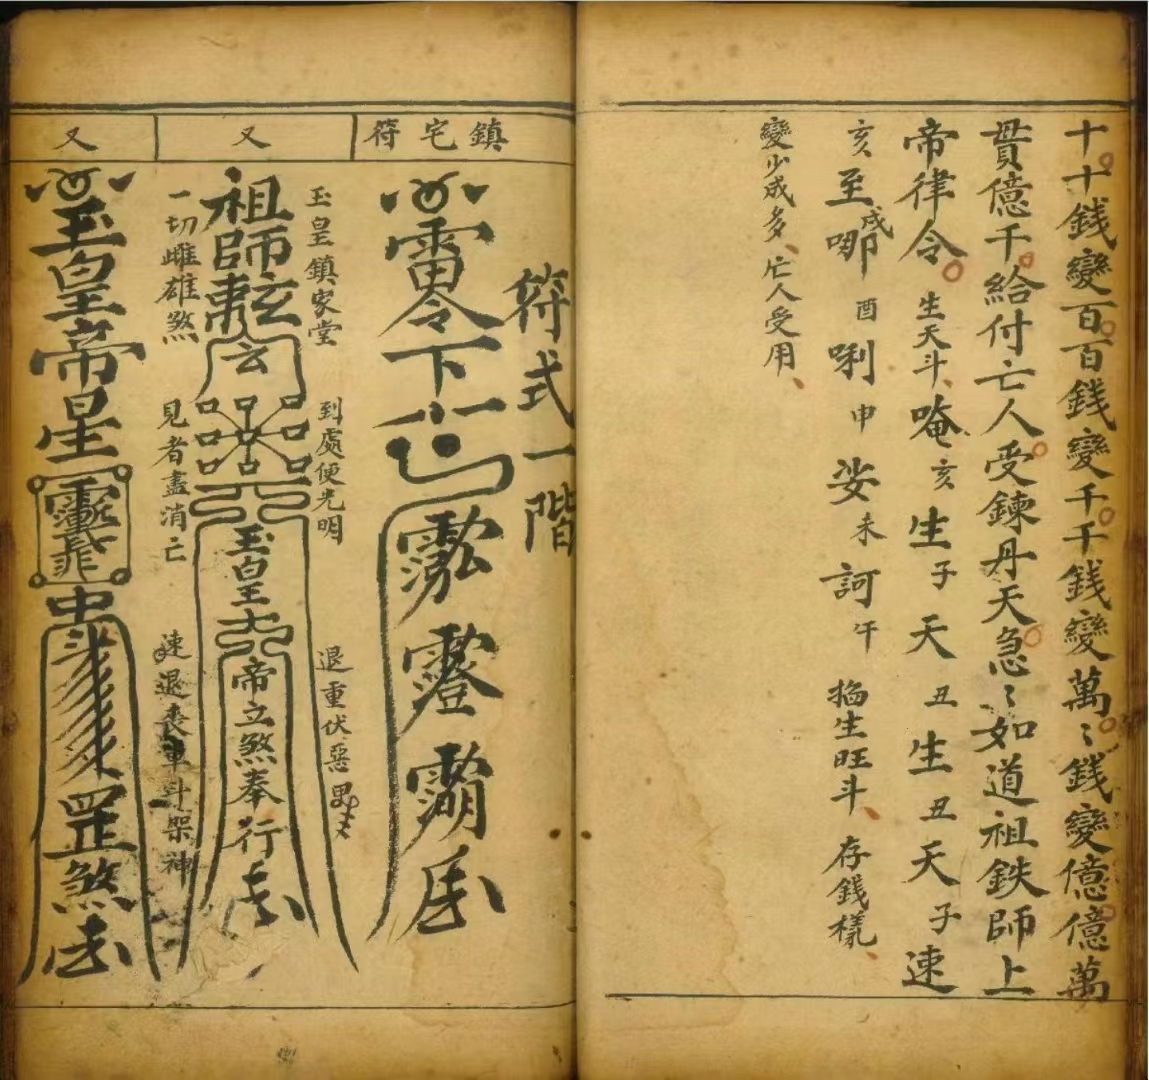 十十錢變百百錢變千千錢變萬〻錢變億億萬
貫億千給付亡人受鍊丹天急〻如道祖鉄師上
帝律令 生天斗、唵亥生子天丑生丑天子速
亥至戌唧酉唎申娑未訶午 掐生旺斗、存錢樣、
變少成多、亡人受用、
符式一階
鎮宅符
雷令下
又
玉皇鎮家堂 到處便光明 退重伏惡
祖師
玄
玉皇
帝立煞奉行
一切雌雄煞 見者盡消亡 速退喪車斗架神
又
玉皇帝星
罡煞